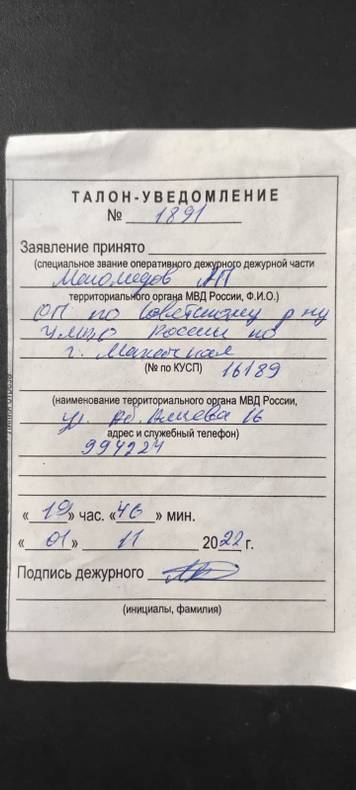 ТАЛОН-УВЕДОМЛЕНИЕ
№ 1891
Заявление принято
(специальное звание оперативного дежурного дежурной части
Магомедов АП
территориального органа МВД России, Ф.И.О.)
ОП по Советскому р-ну
УМВД России по
г. Махачкала
(№ по КУСП) 16189
(наименование территориального органа МВД России,
ул. Аб. Алиева 16
адрес и служебный телефон)
994224
« 19 » час. « 46 » мин.
« 01 » 11 2022 г.
Подпись дежурного
(инициалы, фамилия)